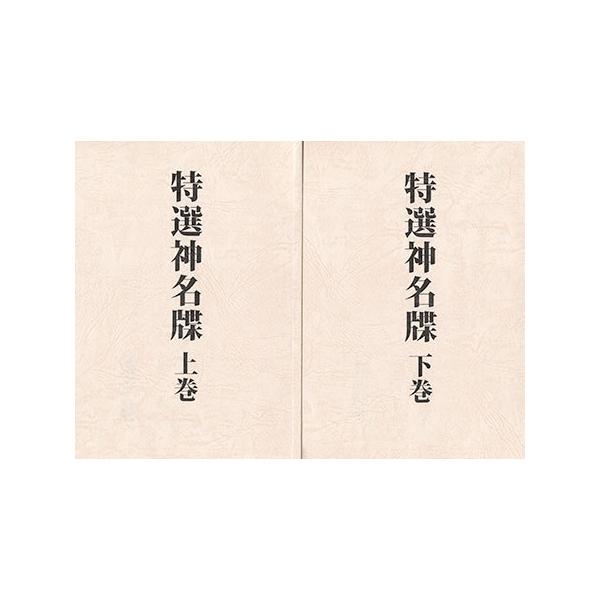 特選神名牒 上巻
特選神名牒 下巻